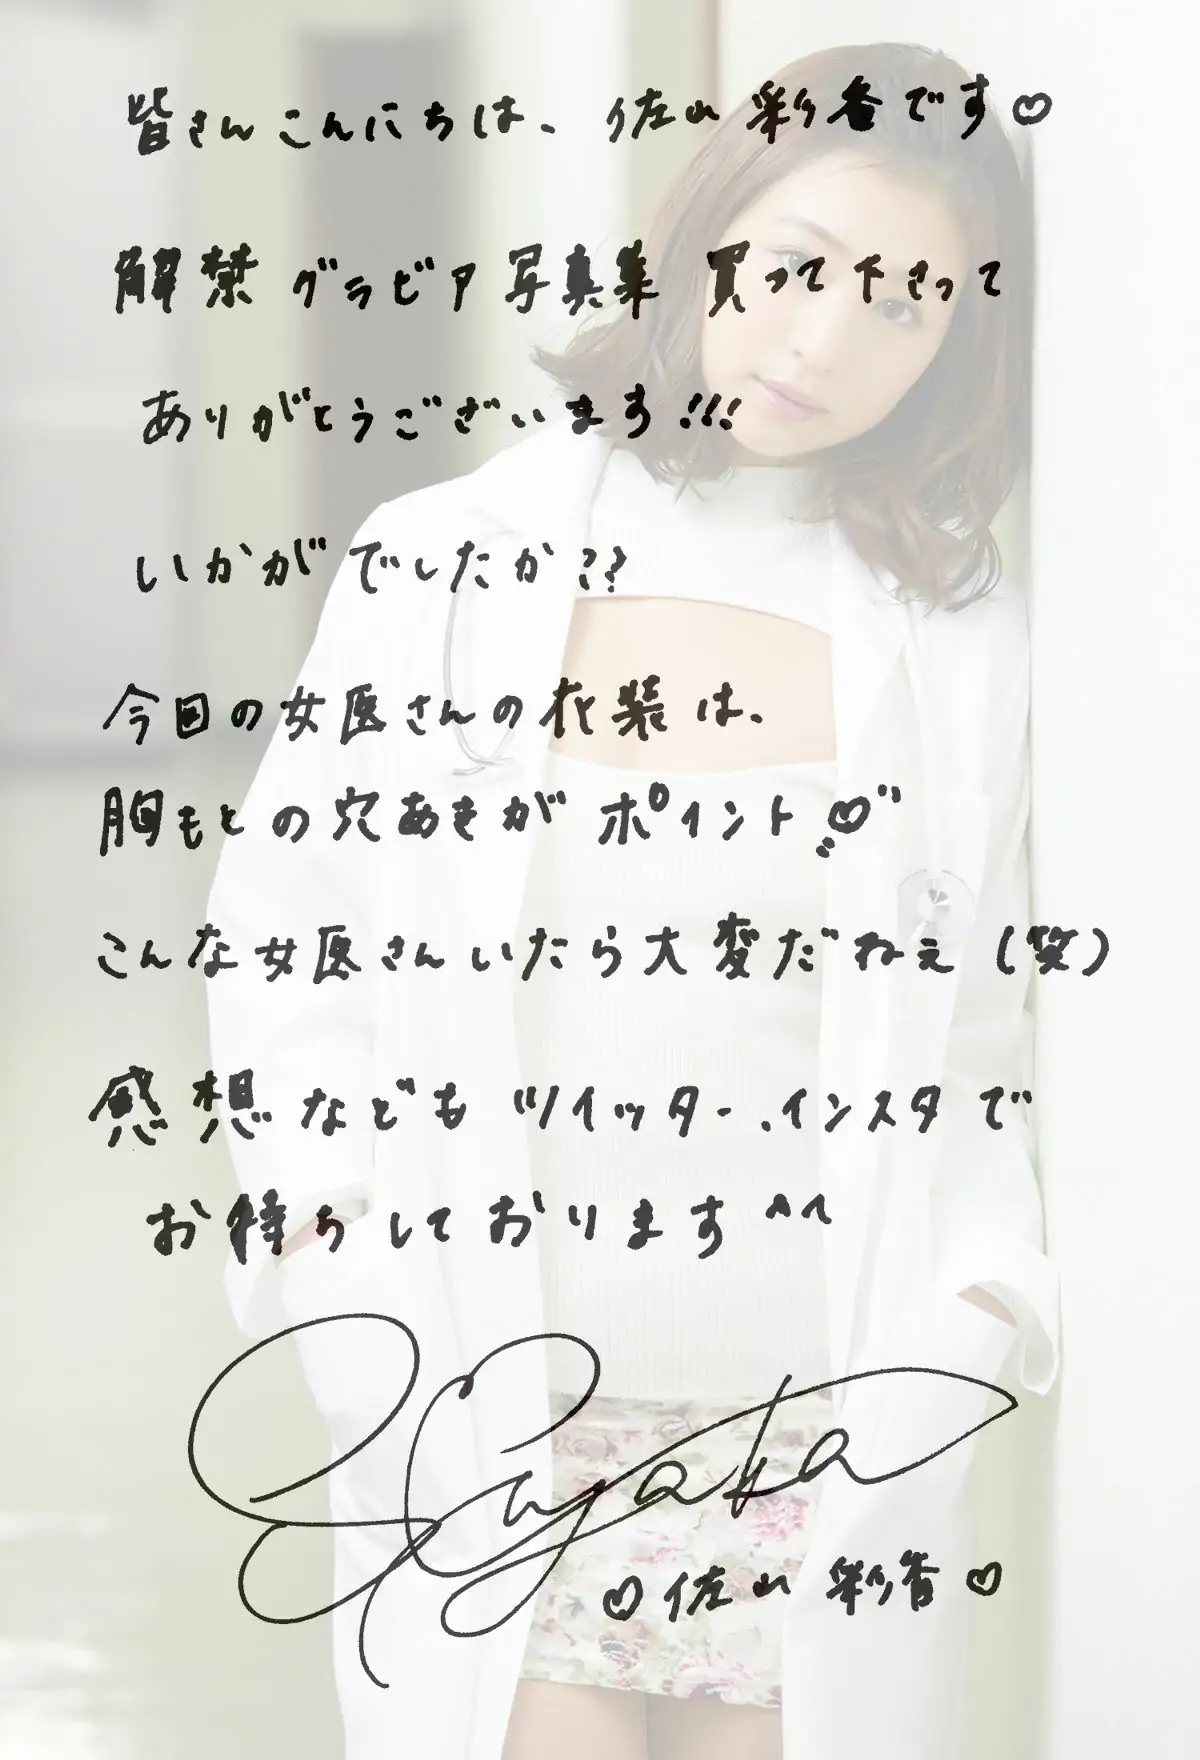 皆さんこんにちは、佐山彩香です♡
解禁グラビア写真集買って下さって
ありがとうございます!!!
いかがでしたか??
今回の女医さんの衣装は、
胸もとの穴あきがポイント♡
こんな女医さんいたら大変だねぇ(笑)
感想などもツイッター、インスタで
お待ちしております^^
Sayaka
♡佐山彩香♡